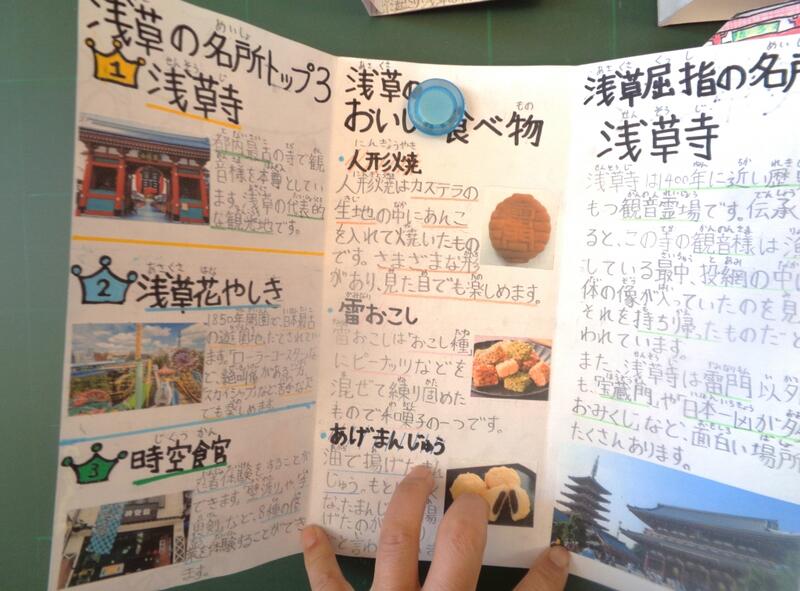 浅草の名所トップ3
1 浅草寺
都内最古の寺で観
音様を本尊としてい
ます。浅草の代表的
な観光地です。
2 浅草花やしき
1850年開園で、日本最古
の遊園地
ます。「ローラーコースター」な
スカイシップなど苦手な人
でも楽しめます。
3 時空館
体験をすることが
できます。壁渡りや
など、8種の修
を体験することができ
ます。
浅草の
おいし 食べ物
・人形焼
人形焼はカステラの
生地の中にあんこ
を入れて焼いたもの
です。さまざまな形
があり、見た目でも楽しめます。
・雷おこし
雷おこしは「おこし種」
にピーナッツなどを
混ぜて練り固めた
もので和菓子の一つです。
・あげまんじゅう
油で揚げたまん
じゅう。もと
なったまんじ 場
げたのが
と言わ ま
浅草屈指の名所
浅草寺
浅草寺は1400年に近い歴史
もつ観音霊場です。伝承
ると、この寺の観音様は漁
している最中、投網の中に
体の像が入っていたのを見
それを持ち帰ったものだと
われています。
また、浅草寺は雷門以外
も、宝蔵門」や「日本一凶が多
おみくじ」など、面白い場所
たくさんあります。